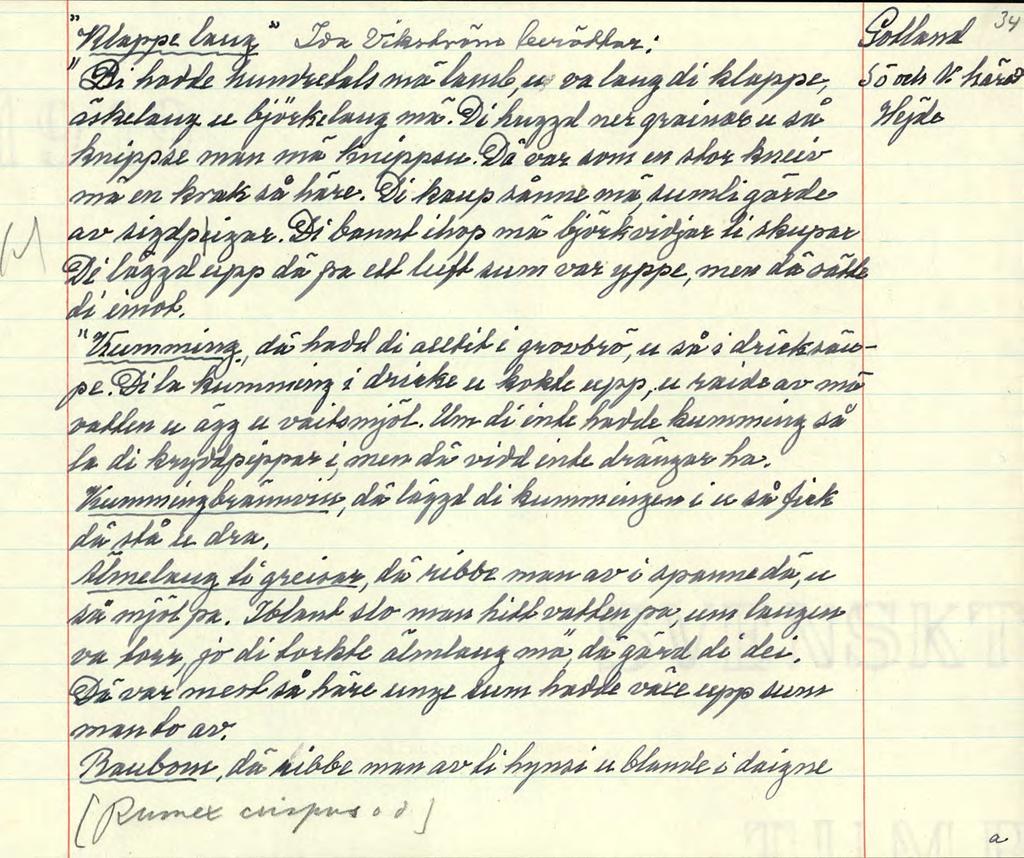 34
"Klappe laug" Ida Vikström berättar:
Gotland
"Di hadde hundretals mä lamb, u va laug di klappe,
Sö och V härad
äskelaug u björkelaug mä. Di huggd ner grainar u så
Hejde
knippse man mä knippsu. Dä var som en stor kneiv
mä en krak så häre. Di kaup sånne mä, sumli gärde
av sigdpeigar. Di bannt ihop mä björkvidjar ti skupar
Di läggd upp dä pa ett luft sum var yppe, men dä sätte
di imot.
"Kumming, dä hadd di alltit i grovbrö, u så i dricksäu-
pe. Di la kumming i dricke u kokte upp, u raide av mä
vatten u ägg u vaitsmjöl. Um di inte hadde kumming så
la di kryddpeppar i, men dä vidd inte drängar ha.
Kummingbränvin, dä läggd di kummingen i u så fick
dä stå u dra.
Älmelaug ti greisar, dä ribbe man av i spannedä, u
så mjöl pa. Iblant slo man hitt vatten pa um laugen
va torr, jo di torkte älmlaug mä, dä gärd di dei.
Dä var mest så häre unge sum hadde växe upp sum
man to av.
Raubom, dä ribbe man av ti hynsi u blande i daigne
[Rumex crispus o d]
a